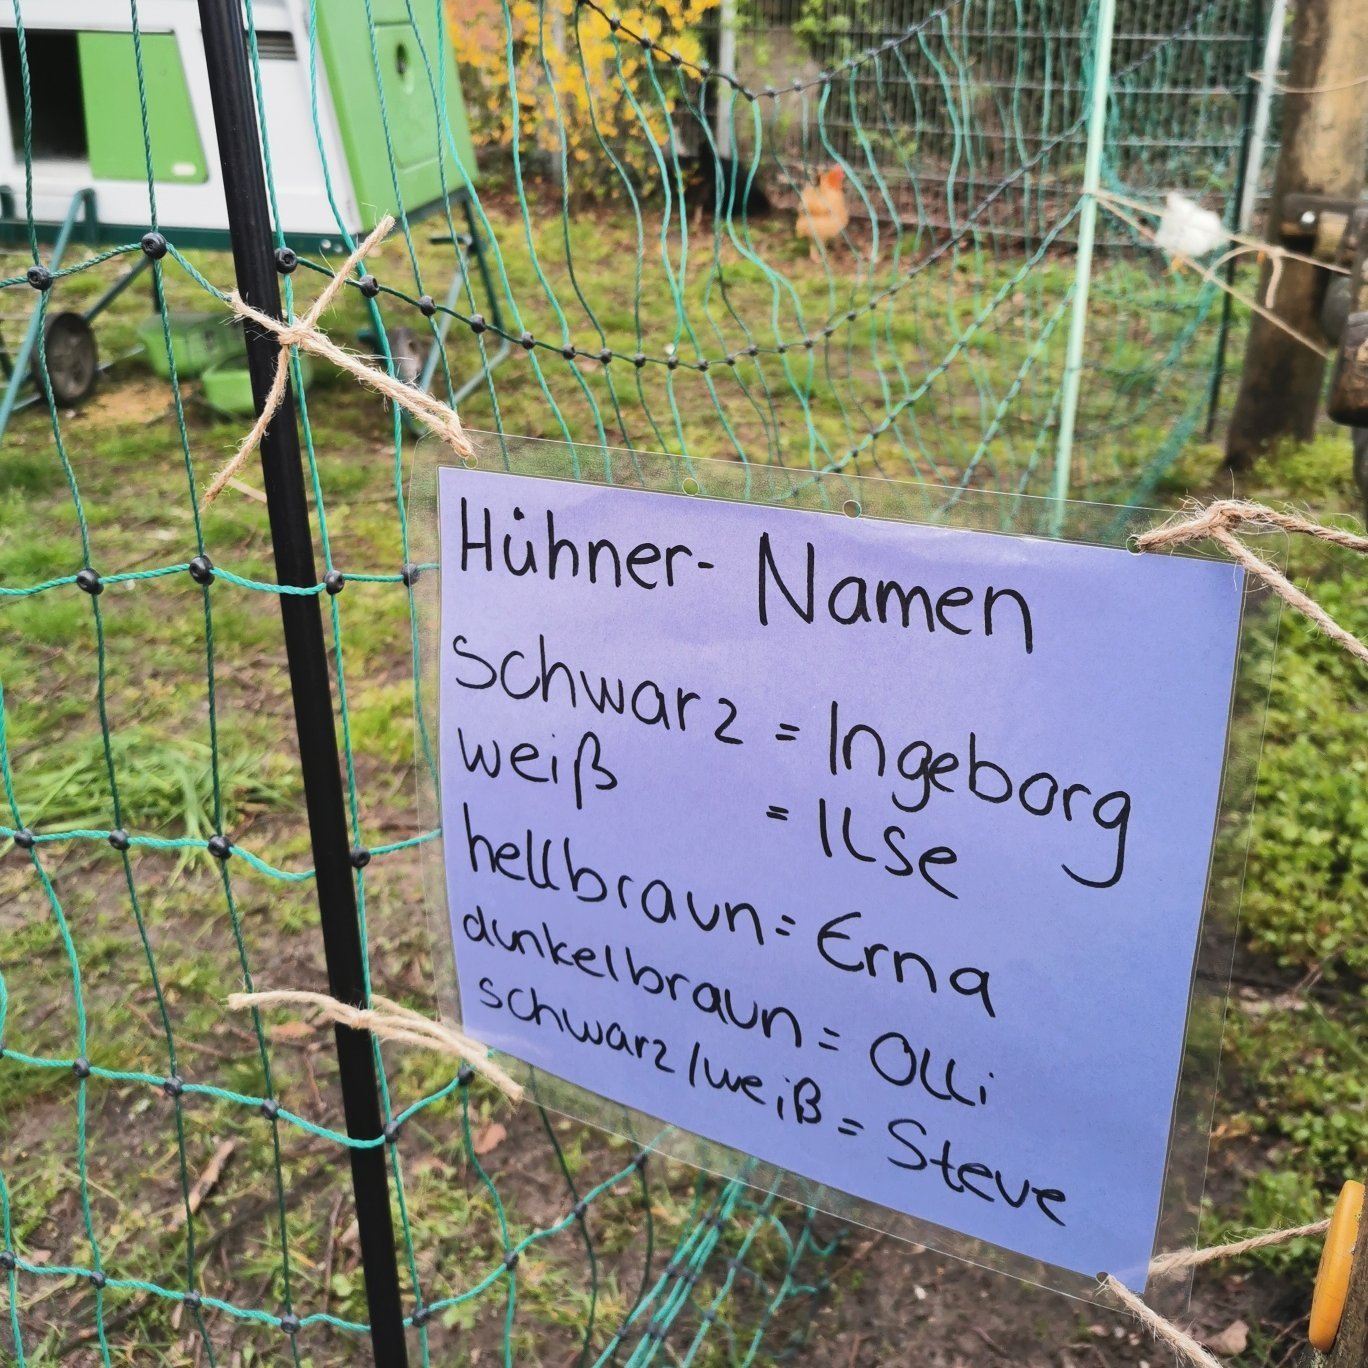 Hühner- Namen
schwarz = Ingeborg
weiß = Ilse
hellbraun = Erna
dunkelbraun = Olli
schwarz/weiß = Steve